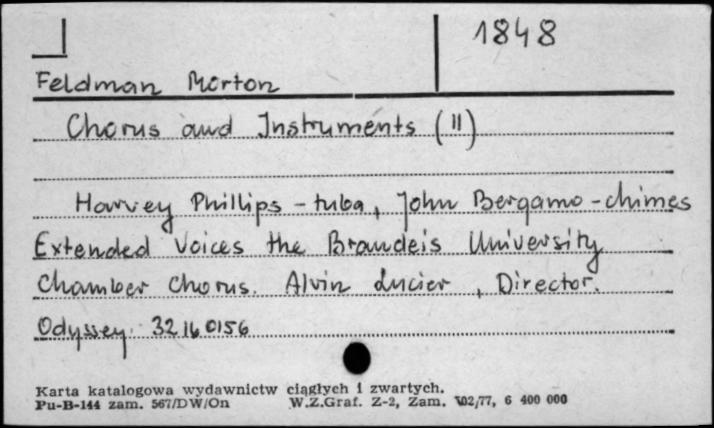 1848
Feldman Morton
Chorus and Instruments (II)
Harvey Phillips - tuba, John Bergamo - chimes
Extended Voices the Brandeis University
Chamber Chorus. Alvin Lucier, Director.
Odyssey: 32160156
Karta katalogowa wydawnictw ciągłych i zwartych.
Pu-B-144 zam. 567/DW/On W.Z.Graf. Z-2, Zam. 102/77, 6 400 000